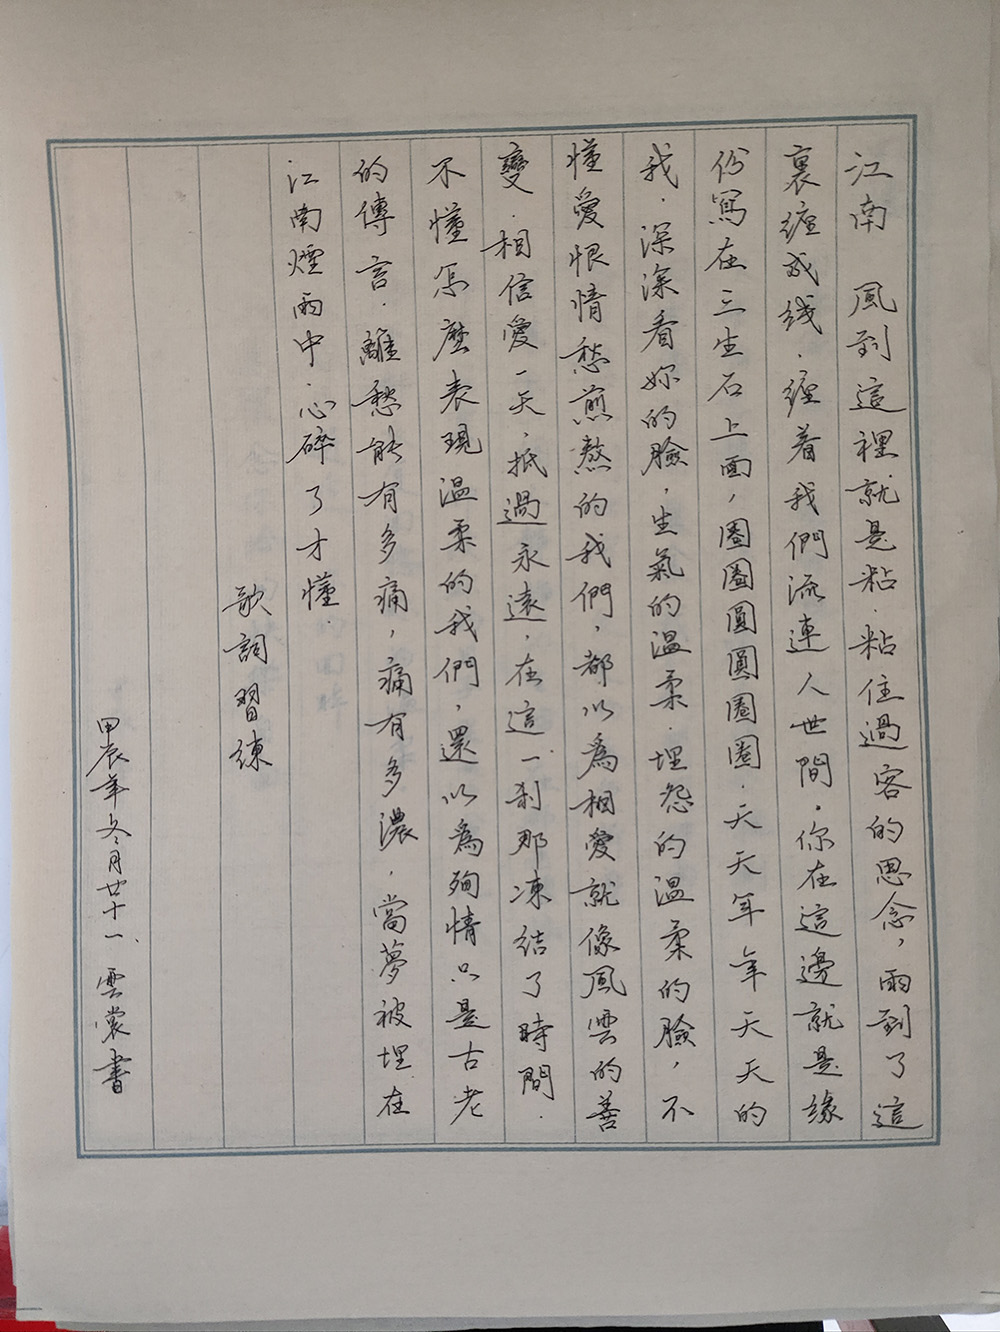 江南　風到這裡就是粘．粘住過客的思念，雨到了這
裏纏成线．纏着我們流連人世間．你在這邊就是緣
份寫在三生石上面，圈圈圓圓圈圈．天天年年天天的
我．深深看妳的臉，生氣的温柔．埋怨的温柔的臉，不
懂愛恨情愁煎熬的我們，都以為相愛就像風雲的善
變．相信愛一天．抵過永遠．在這一刹那凍结了時間．
不懂怎麼表現温柔的我們，還以為殉情只是古老
的傳言．離愁能有多痛，痛有多濃．當夢被埋在
江南煙雨中．心碎了才懂．
歌詞習練
甲辰年冬月廿十一．雲裳書